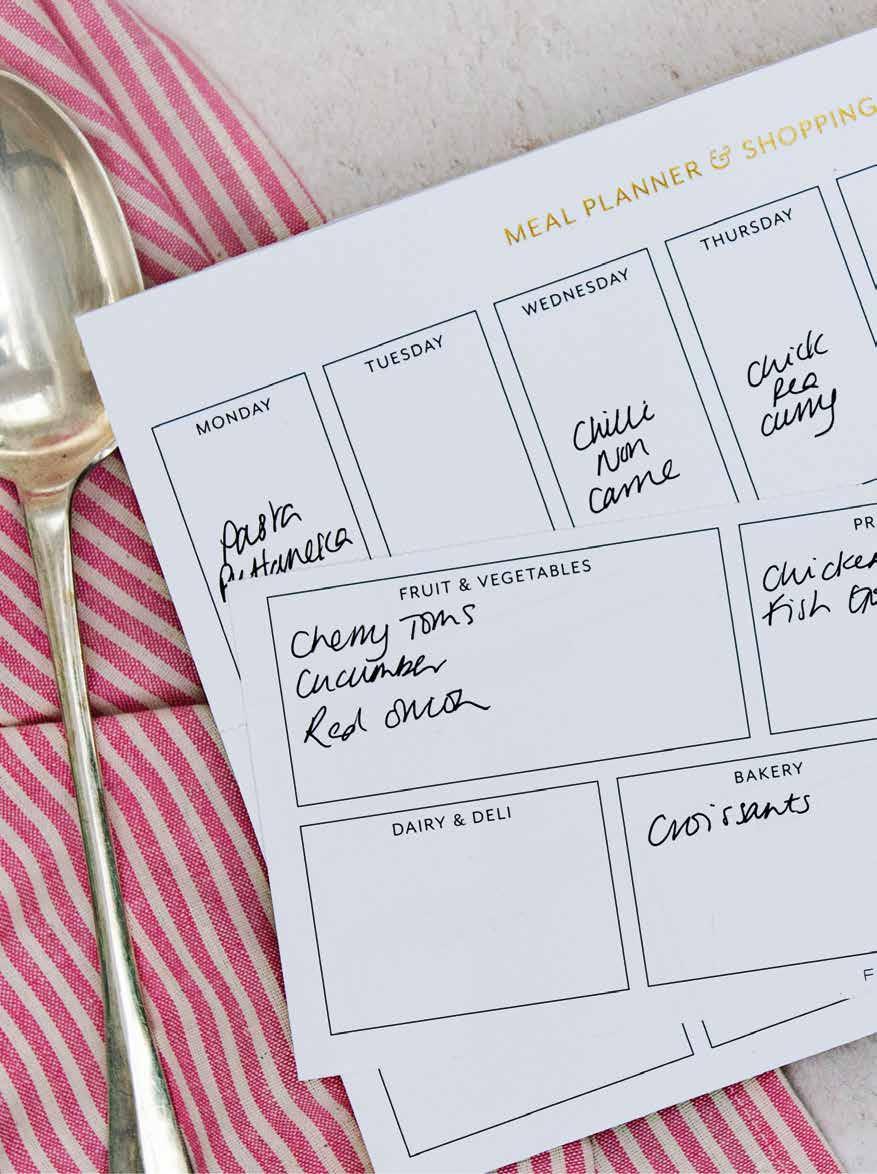 MEAL PLANNER & SHOPPING
MONDAY
Pasta
Puttanesca
TUESDAY
WEDNESDAY
Chilli
Non
Carne
THURSDAY
Chick
Pea
Curry
FRUIT & VEGETABLES
Cherry Toms
Cucumber
Red onion
PR
Chicken
Fish
DAIRY & DELI
BAKERY
Croissants
F